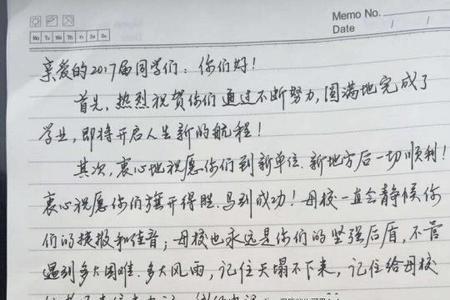 Memo No.
Mo Tu We Th Fr Sa Su
Date / /
亲爱的2017届同学们：你们好！
首先，热烈祝贺你们通过不断努力，圆满地完成了
学业，即将开启人生新的航程！
其次，衷心地祝愿你们到新单位、新地方后一切顺利！
衷心祝愿你们旗开得胜、马到成功！母校一直会静候你
们的捷报和佳音；母校也永远是你们的坚强后盾，不管
遇到多大困难、多大风雨，记住天塌不下来，记住给母校